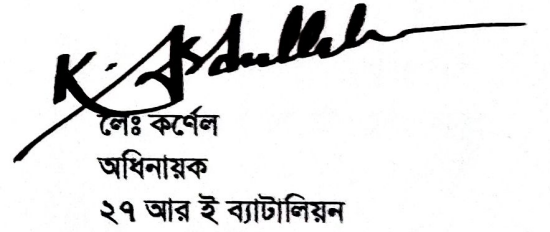 K. Abdullah
লেঃ কর্ণেল
অধিনায়ক
২৭ আর ই ব্যাটালিয়ন